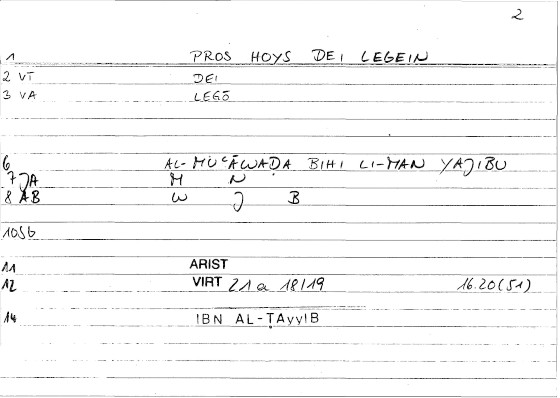 2
1 PROS HOYS DEI LEGEIN
2 VT DEI
3 VA LEGŌ
6 AL-MUʿĀWAḌA BIHI LI-MAN YAJIBU
7 JA M N
8 AB W J B
10 Sb
11 ARIST
12 VIRT 21 a 18/19 16.20(51)
14 IBN AL-ṬAyyIB